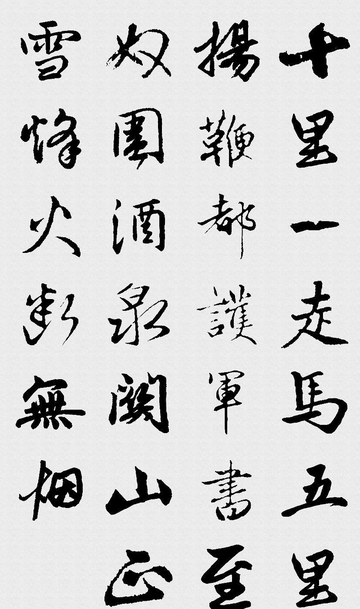 十里一走馬五里
揚鞭都護軍書至
奴圍酒泉關山正
雪烽火斷無烟